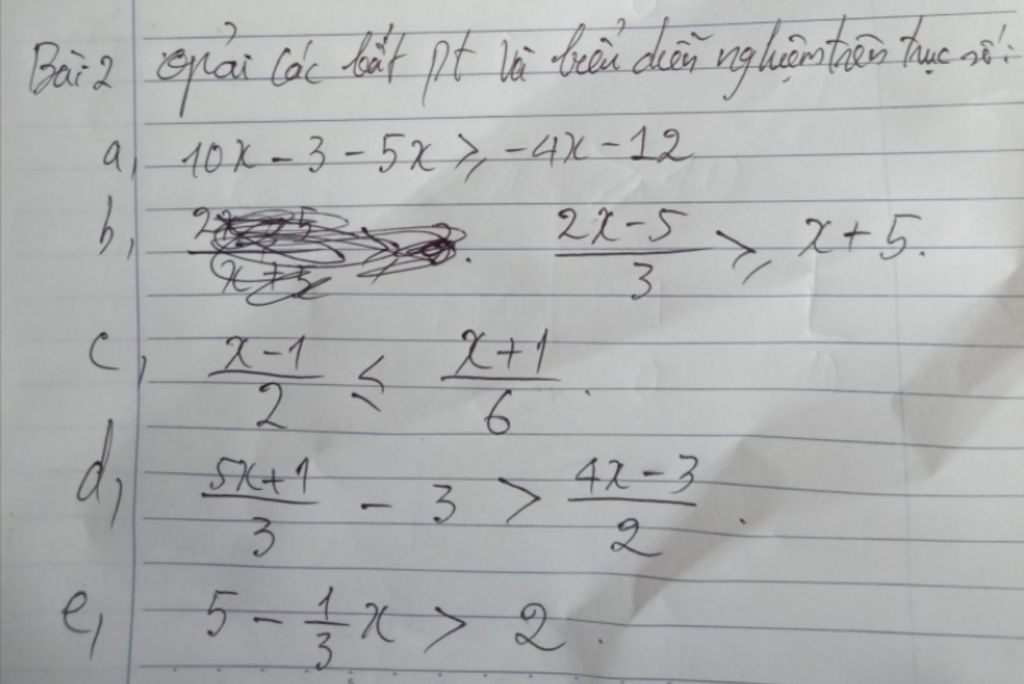 Bài 2 giải các bất pt và biểu diễn nghiệm trên trục số:
a, 10x - 3 - 5x ≥ -4x - 12
b, (2x - 5)/3 ≥ x + 5.
c, (x - 1)/2 ≤ (x + 1)/6.
d, (5x + 1)/3 - 3 > (4x - 3)/2.
e, 5 - 1/3 x > 2.